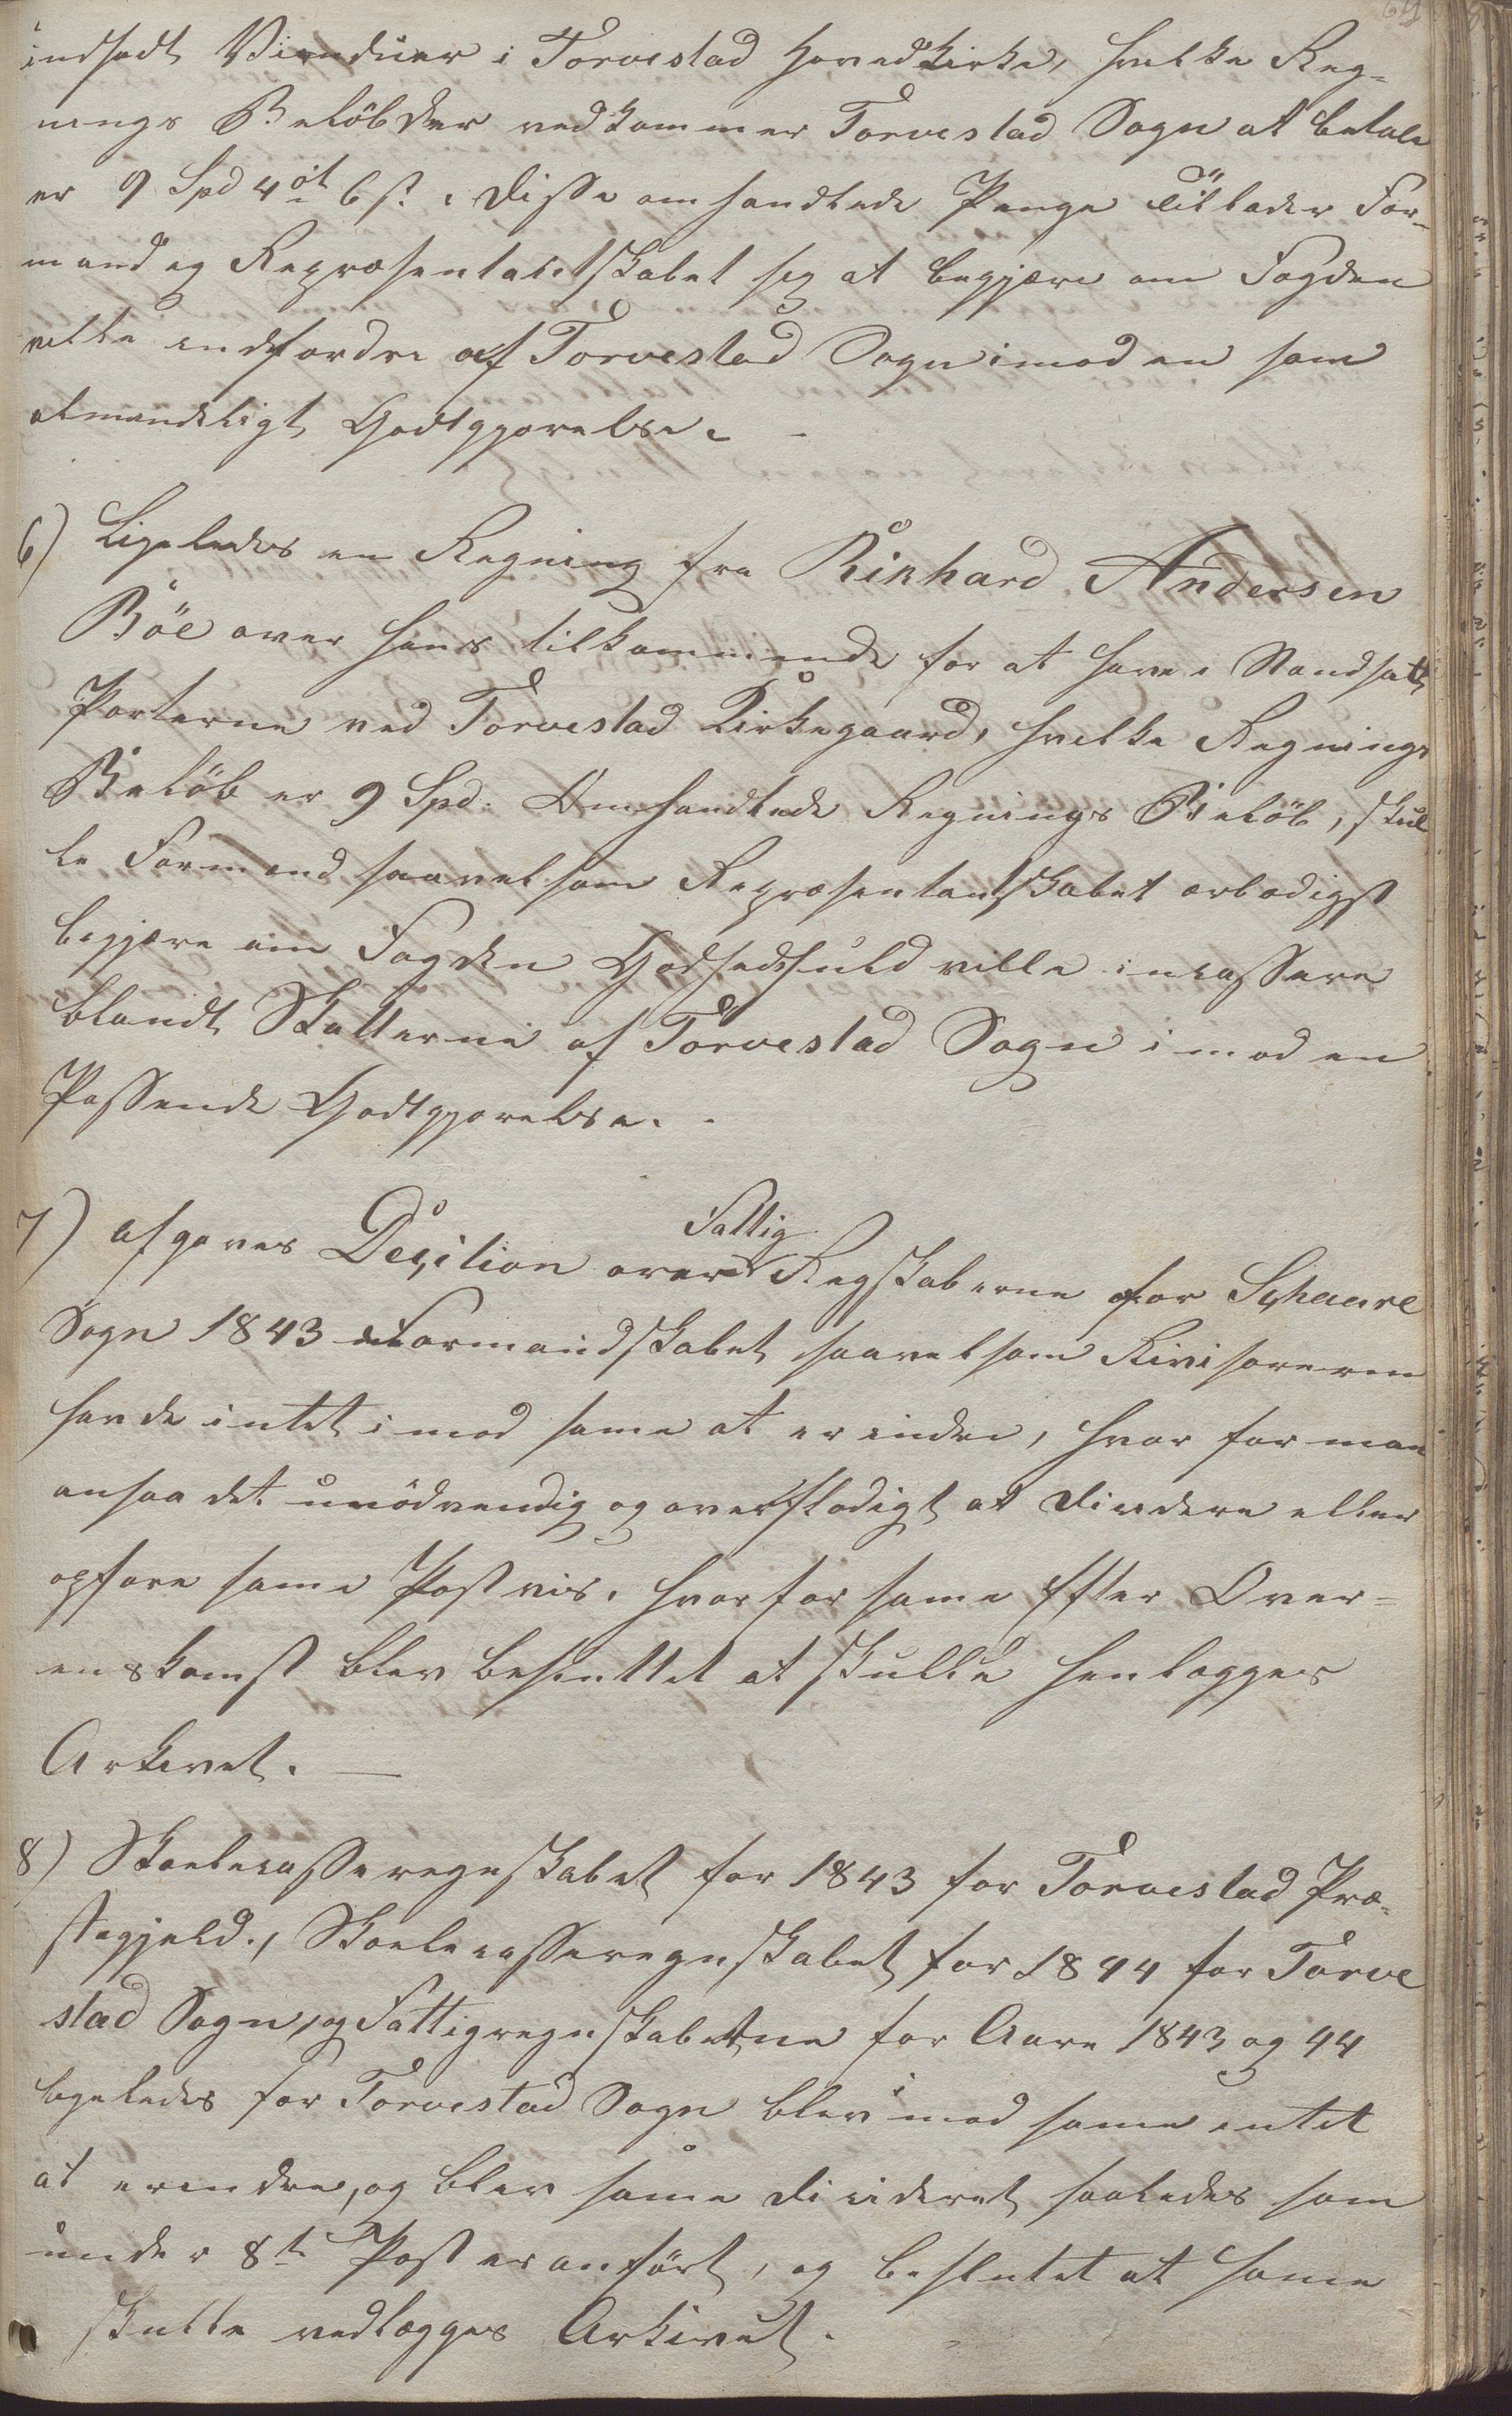 69
indsadt Vinduer i Torvestad Hovedkirke, hvilke Reg-
nings Belöb der vedkommer Torvestad Sogn at betale
er 9 Spd 4 ort 6 s. Disse omhandlede Penge tillader For-
mand og Repræsentantskabet sig at begjære om Fogden
vilde indfordre af Torvestad Sogn imod en som
almindeligt Godtgjørelse. -
6) Ligeledes en Regning fra Rinhard Andersen
Böe over hans tilkommende for at have i Standsatt
Porterne ved Torvestad Kirkegaard, hvilke Regnings
Belöb er 9 Spd. Omhandlede Regnings Belöb, skul
le Formand saavelsom Repræsentantskabet ærbødigst
begjære om Fogden Godhedsfuld ville incassere
blandt Skatterne af Torvestad Sogn imod en
Passende Godtgjørelse. -
7) afgaves Decition over Fattig Regskaberne for Schaare
Sogn 1843 Formandskabet saavelsom Revisorerne
havde intet imod same at erindre, hvorfor man
ansaa det unödvendig og overflodigt at Dicidere eller
opføre same Postvis. hvorfor same Efter Over-
enskomst blev besluttet at skulle henlægges
Arkivet. —
8) Skolecasseregnskabet for 1843 for Torvestad Præ-
stegjeld., Skolecasseregnskabet for 1844 for Torve
stad Sogn, og Fattigregnskaberne for Aare 1843 og 44
ligeledes for Torvestad Sogn blev imod same intet
at erindre, og blev same Dicideret saaledes som
under 8de Post er anfört, og besluttet at same
skulle vedlægges Arkivet.